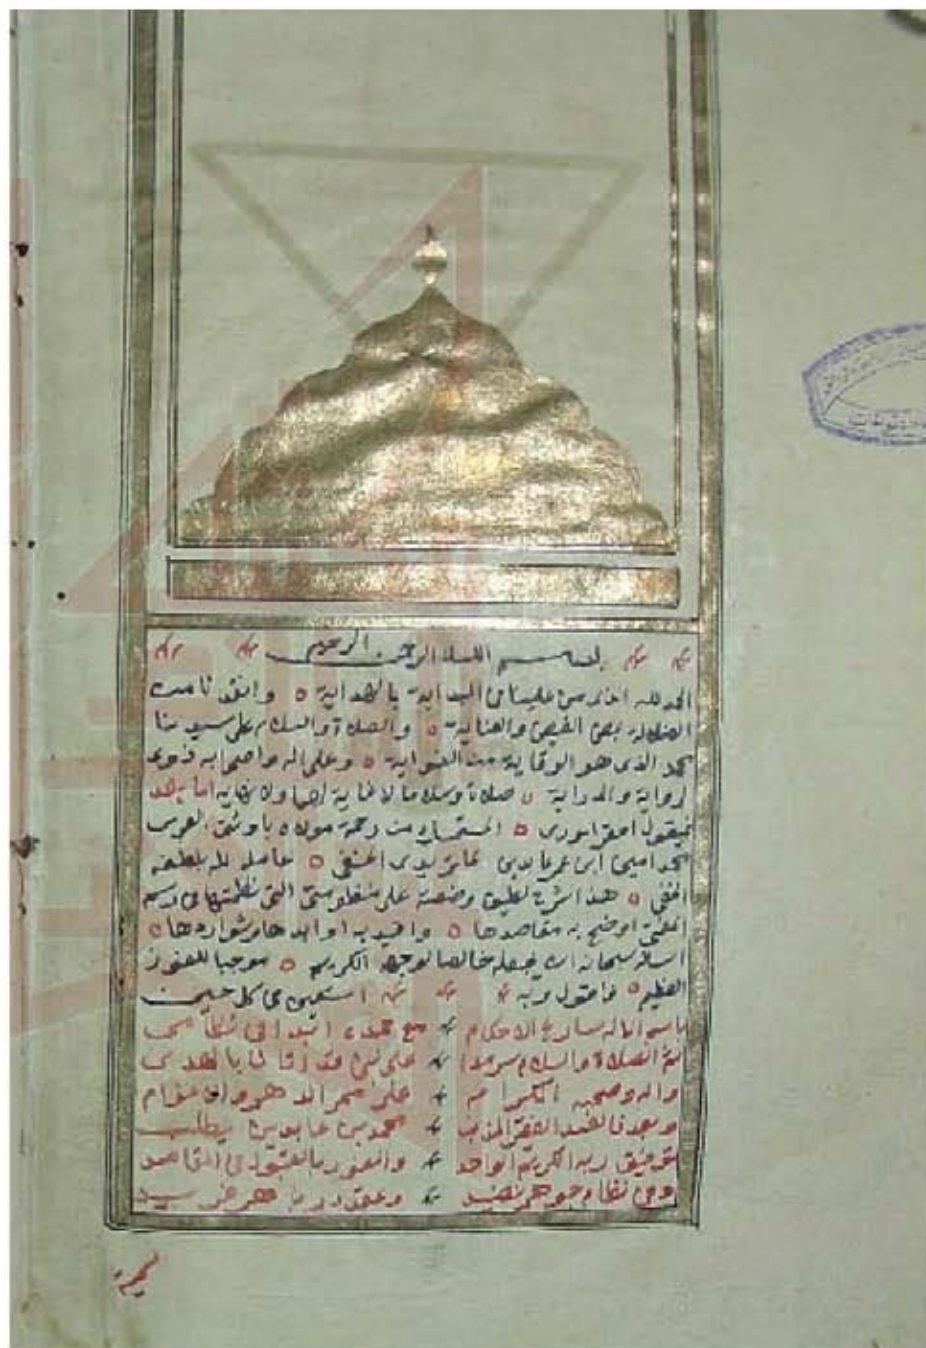 بسم الله الرحمن الرحيم
الحمد لله الذي من علينا في البداية بالهداية ه وانقذنا من
الضلالة بمحض الفيض والعناية ه والصلاة والسلام على سيدنا
محمد الذي هو الوقاية من الغواية ه وعلى اله واصحابه ذوي
الرواية والدراية ه صلاة وسلاما لا غاية لهما ولا نهاية اما بعد
فيقول افقر الورى ه المستمسك من رحمة مولاه باوثق العرى
محمد امين ابن عمر عابدين الماتريدي الحنفي ه عامله الله بلطفه
الخفي ه هذا شرح لطيف وضعته على منظومتي التي نظمتها في رسم
المفتي اوضح به مقاصدها ه واقيد به اوابدها وشواردها ه
اسأله سبحانه ان يجعله خالصا لوجهه الكريم ه موجبا للفوز
العظيم ه فاقول وبه استعين في كل حين
باسم الاله شارع الاحكام مع حمده ابدأ في نظامي
ثم الصلاة والسلام سرمدا على نبي قد اتانا بالهدى
واله وصحبه الكرام على ممر الدهر والاعوام
وبعد فالعبد الفقير المذنب محمد بن عابدين يطلب
توفيق ربه الكريم الواحد والفوز بالقبول في المقاصد
وفي نظام جوهر نضيد وعقد در باهر فريد